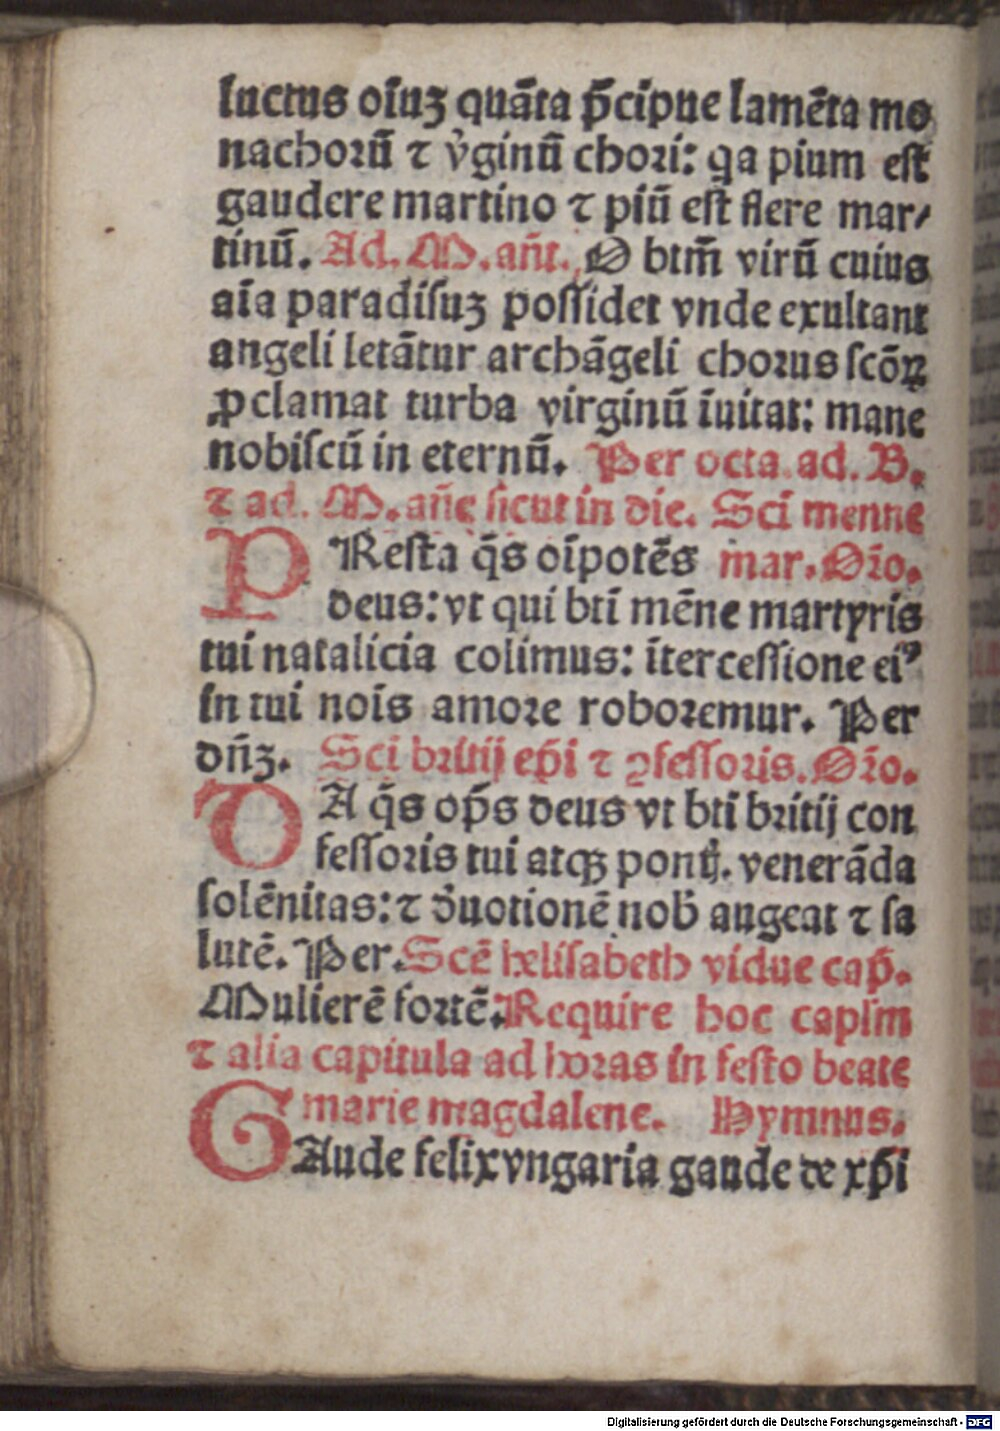 luctus oīuꝫ quāta p̄cipue lamēta mo
nachorū ⁊ v̓ginū chori: qa pium est
gaudere martino ⁊ piū est flere mar/
tinū. Ad. M. añt. O btm̄ virū cuius
aīa paradisuꝫ possidet vnde exultant
angeli letātur archāgeli chorus scōꝝ
ꝓclamat turba virginū īuitat: mane
nobiscū in eternū. Per octa. ad. B.
⁊ ad. M. añe sicut in die. Sci menne
PResta q̄s oīpotēs mar. Oro.
deus: vt qui bti mēne martyris
tui natalicia colimus: ītercessione eiꝰ
in tui noīs amore roboremur. Per
dñꝫ. Sci britij ep̄i ⁊ ꝯfessoris. Oro.
DA q̄s op̄s deus vt bti britij con
fessoris tui atqꝫ pontij. venerāda
solēnitas: ⁊ d̓uotionē nob̄ augeat ⁊ sa
lutē. Per. Scē helisabeth vidue cap̄.
Mulierē fortē. Require hoc caplm
⁊ alia capitula ad horas in festo beate
marie magdalene. Hymnus.
GAude felix vngaria gaude de xp̄i
Digitalisierung gefördert durch die Deutsche Forschungsgemeinschaft - DFG